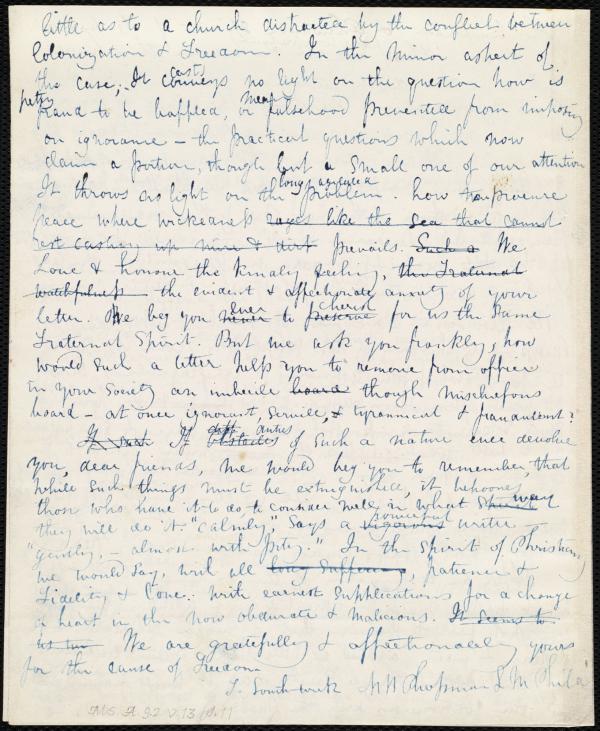 little as to a church distracted by the conflict between
Colonization & Freedom. In the minor aspect of
the case, It casts conveys no light on the question how is
petty fraud to be baffled, or mean falsehood prevented from imposing
on ignorance – the practical questions which now
claim a portion, though but a small one of our attention
It throws no light on the long agitated problem. how to procure
peace where wickedness rages like the sea that cannot
rest casting up mire & dirt prevails. Such a We
Love & honour the kindly feeling, the fraternal
watchfulness the evident & affectionate anxiety of your
letter. We beg you never ever to preserve cherish for us the same
fraternal Spirit. But we ask you frankly, how
would such a letter help you to remove from office
in your Society an imbecile board though mischievous
board – at once ignorant, servile, & tyrannical & fraudulent?
If such If obstacles duties of such a nature ever devolve
you, dear friends, we would beg you to remember, that
while such things must be extinguished, it behooves
those who have it to do to consider well, in what way
they will do it. "Calmly," says a vigorous powerful writer –
"gently, – almost with pity." In the spirit of Christians
we would say, with all long suffering, patience &
fidelity & Love: with earnest supplications for a change
of heart in the now obdurate & malicious. It seems to
us We are gratefully & affectionately yours
for the cause of Freedom
T. Southwick M W Chapman L M Child
Ms. A. 9.2 v. 13, p. 11